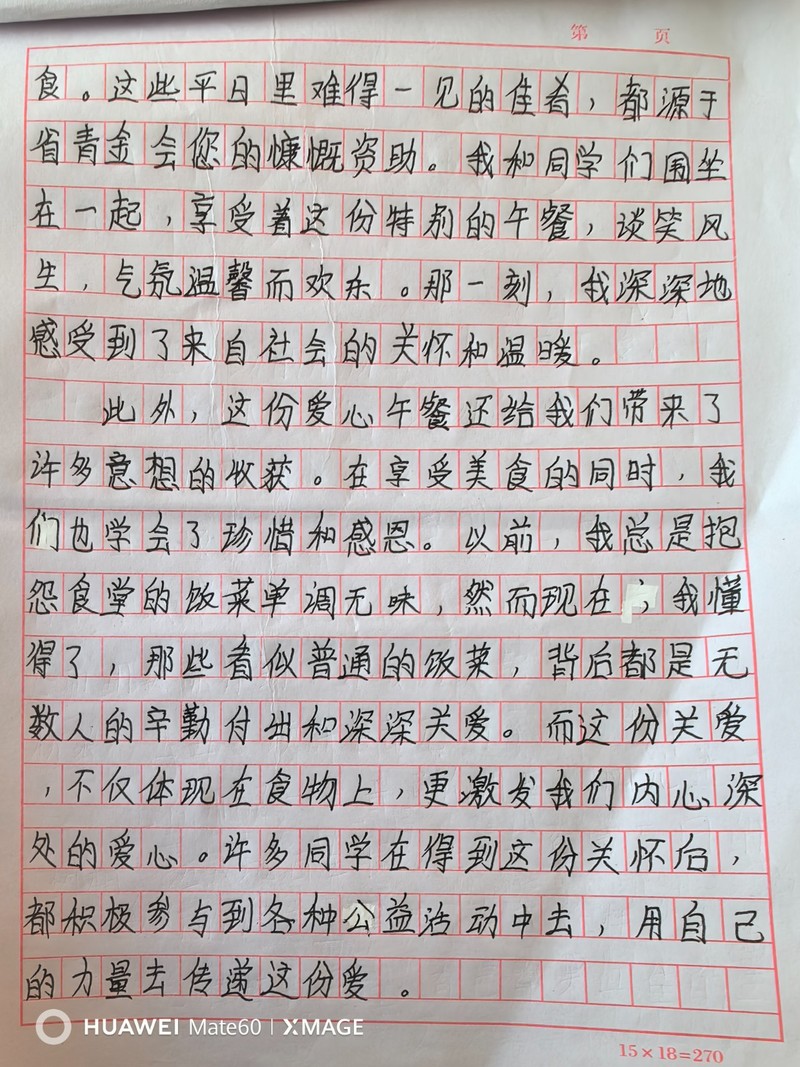 第 页
食。这些平日里难得一见的佳肴，都源于
省青金会您的慷慨资助。我和同学们围坐
在一起，享受着这份特别的午餐，谈笑风
生，气氛温馨而欢乐。那一刻，我深深地
感受到了来自社会的关怀和温暖。
此外，这份爱心午餐还给我们带来了
许多意想的收获。在享受美食的同时，我
们也学会了珍惜和感恩。以前，我总是抱
怨食堂的饭菜单调无味，然而现在，我懂
得了，那些看似普通的饭菜，背后都是无
数人的辛勤付出和深深关爱。而这份关爱
，不仅体现在食物上，更激发我们内心深
处的爱心。许多同学在得到这份关怀后，
都积极参与到各种公益活动中去，用自己
的力量去传递这份爱。
HUAWEI Mate60 | XMAGE
15×18=270